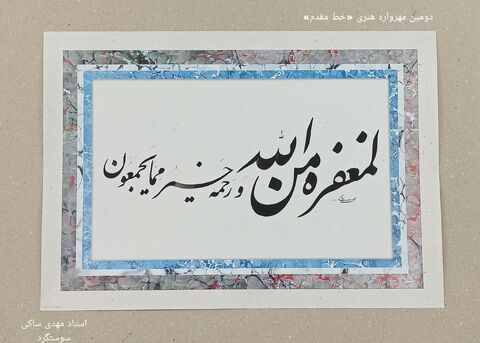 دومین مهرواره هنری «خط مقدم»
لمغفره من الله و رحمه خیر مما یجمعون
استاد مهدی ساکی
سوسنگرد